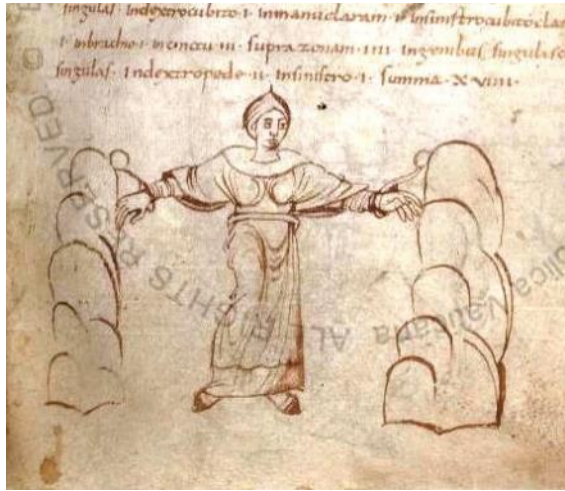 singulas· Indextrocubito·i· Inmanuclaram·i· Insinistrocubitoclar
supra zonam·iiii· Ingenibus singulas
singulas· Indextropede·ii· Insinistro·i· summa·xviii·
AL RIGHTS RESERVED